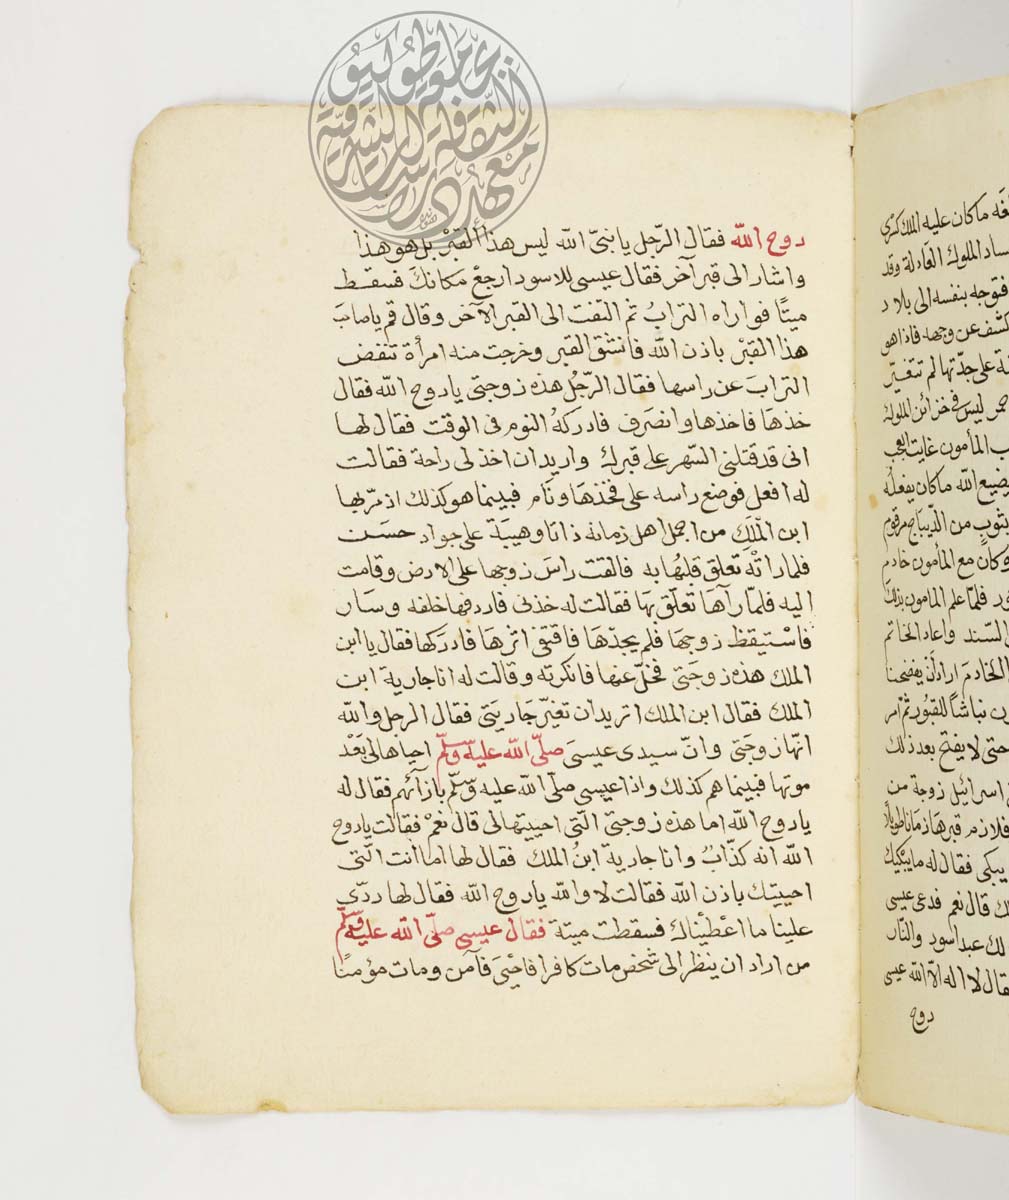 روح الله فقال الرّجل يا نبىّ الله ليس هذا القبْر بل هو هذا
واشار الى قبر آخر فقال عيسى للاسود ارجعْ مكانكَ فسقط
ميتًا فواراه الترابُ ثم التفت الى القبر الآخر وقال قم ياصاحبَ
هذا القبْر باذن الله فانشق القبر وخرجت منه امرأة تنفض
الترابَ عن راسها فقال الرّجُل هذه زوجتى ياروح الله فقال
خذهَا فاخذها وانصَرف فادركهُ النوم فى الوقت فقال لها
انى قد قتلنى السّهر على قبرك واريد ان اخذ لى راحة فقالت
له افعل فوضع راسه على فخذهَا ونَام فبينما هو كذلك اذ مرّ بها
ابن الْملَك من اجمل اهل زمانه ذاتا وهيبَة على جواد حسَن
فلما راتْه تعلق قلبُها به فالقت راسَ زوجها على الارض وقامت
اليه فلمّا رآهَا تعلّق بهَا فقالت له خذنى فاردفها خلفه وسَار
فاسْتيقظ زوجهَا فلم يجدْهَا فاقتفى اثرهَا فادركها فقال يا ابن
الملك هذه زوجَتى فخلّ عنها فانكرته وقالت له انا جارية ابن
الملك فقال ابن الملك اتريد ان تغيّر جاريَتى فقال الرجل والله
انّها زوجَتى وانّ سيدى عيسىَ صلّى الله عليه وسلّم احياها لى بَعْد
موتها فبينما هم كذلك واذا عيسى صلّى الله عليه وسّلم بازآئهم فقال له
ياروح الله اما هذه زوجتى الّتى احييتها لى قال نعمْ فقالت ياروح
الله انه كذّابٌ وانا جارية ابنُ الملك فقال لها اما انت الّتى
احييتِك باذن الله فقالت لا والله ياروح الله فقال لها ردّى
علينا ما اعْطيْناك فسقطت ميتة فقال عيسى صلّى الله عليه وسلّم
من اراد ان ينظر الى شخص مات كافرا فاحْيىَ فآمن ومات مؤمنًا
فه ما كان عليه الملك كسْرى
ساد الملوك العَادلة وقد
فتوجه بنفسه الى بلاد
كشف عن وجهه فاذا هو
ة على جدّتها لم تتغيّر
حمر ليس فى خزائن الملوك
ب المأمون غايت العجب
يضيع الله ما كان يفعلهُ
بثوبٍ من الدّيبَاج مرقوم
وكان مع المأمون خادم
ور فلمّا علم المامون بذلك
السّند واعاد الخاتم
الخادمَ ارادَ أن يفضحنا
ون نباشًا للقبُور ثمّ امر
حتى لا يفتح بعد ذلك
اسرائيل زوجة من
فلازم قبرهَا زمَانا طويلًا
يبكى فقال له ما يبْكيكَ
ك قال نعم فدعى عيسى
لك عبد اسود والنّار
قال لا اله الا الله عيسى
روح
معهد الثقافة والدراسات الشرقية
جامعة طوكيو